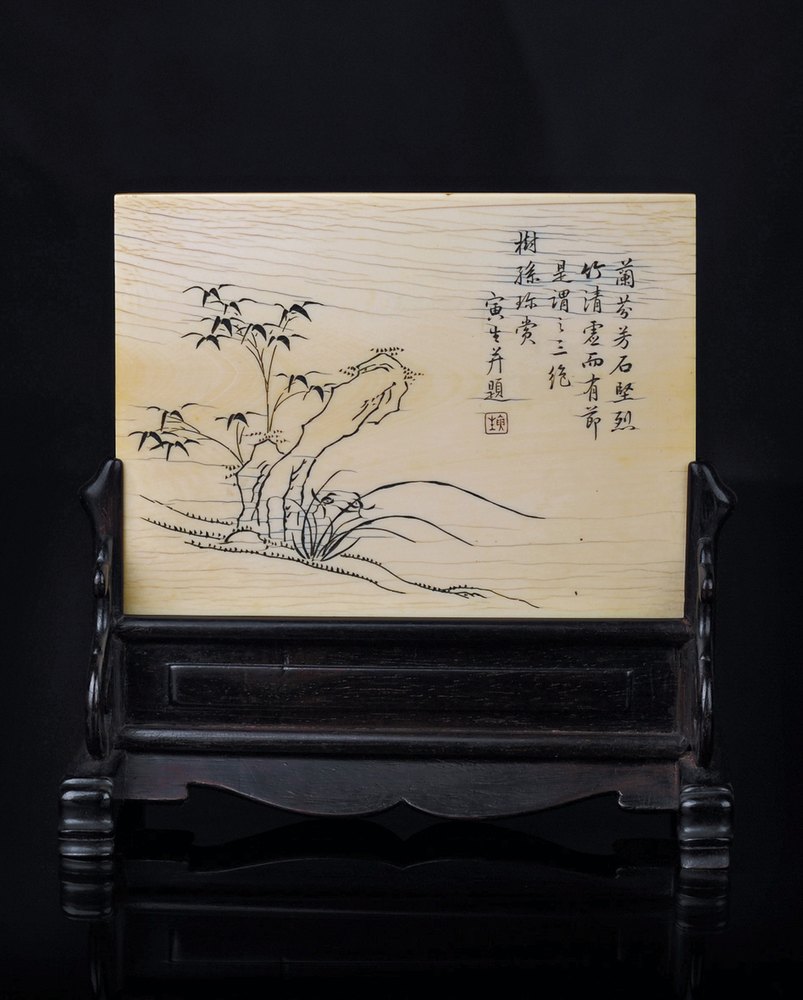 蘭芬芳石堅烈
竹清虛而有節
是謂之三絶
樹孫珍賞
寅生并題